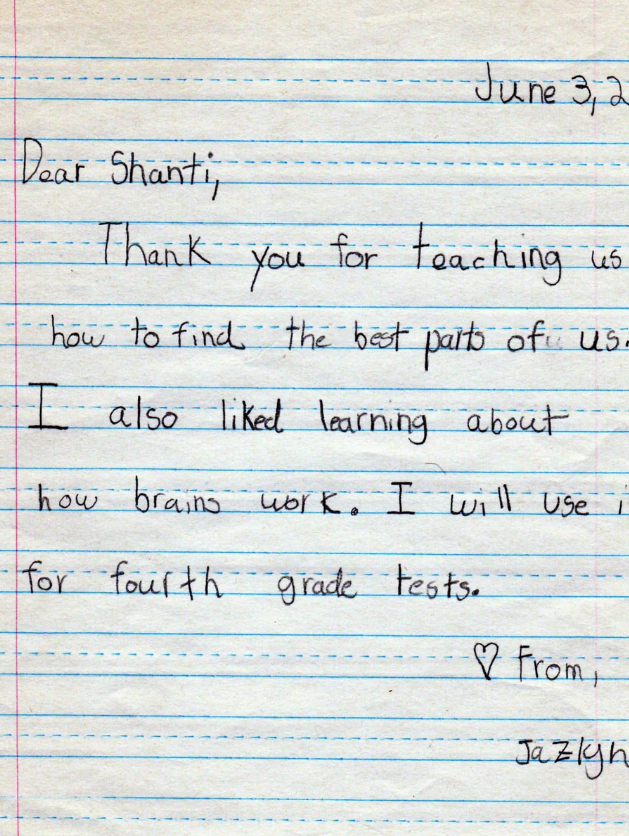 June 3, 2
Dear Shanti,
Thank you for teaching us
how to find the best parts of us.
I also liked learning about
how brains work. I will use i
for fourth grade tests.
♡ From,
Jazlyn